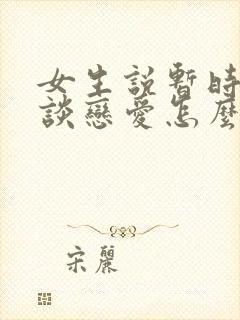 女生說暫時
談戀愛怎麼
宋麗